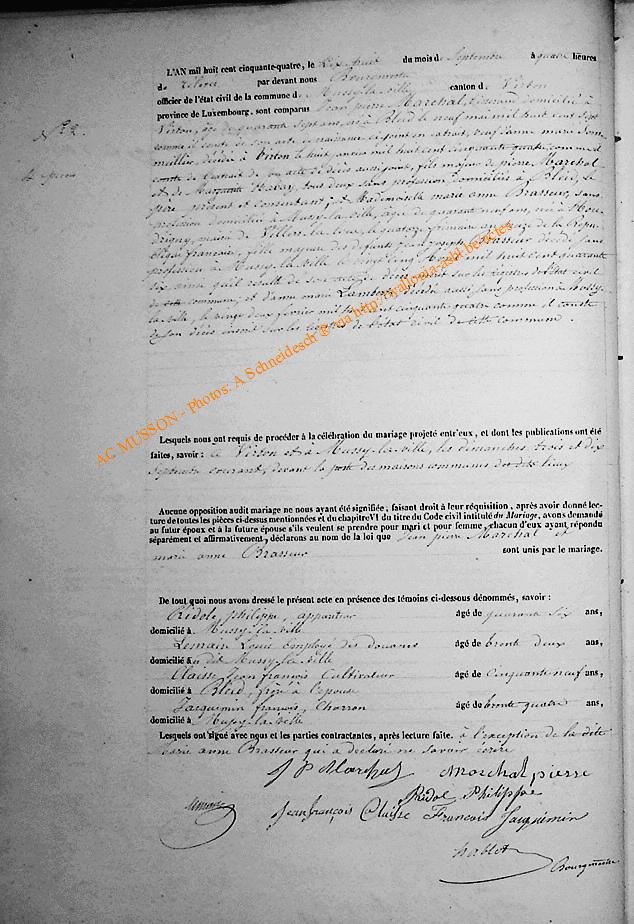 L'AN mil huit cent cinquante-quatre, le dix huit du mois de Septembre à quatre heures
de relevée par devant nous Bourgmestre
officier de l'état civil de la commune de Mussy-la-ville canton de Virton
province de Luxembourg, sont comparus Jean pierre Marchal, domicilié à
Virton, âgé de quarante sept ans, né à Bleid le neuf mai mil huit cent sept
comme il conste de son acte de naissance ci joint en extrait, veuf d'anne marie
décédée à Virton le huit mil huit cent cinquante quatre comme il
conste de l'extrait de son acte de décès aussi joint, fils majeur de pierre Marchal
et de Marguerite Habay, tous deux sans profession domiciliés à Bleid, le
père présent et consentant; et Mademoiselle marie anne Brasseur, sans
profession domiciliée à Mussy-la-ville, âgée de quarante neuf ans, née à
mairie de Villers-la-loue, le quatorze frimaire de la Répu-
blique française, fille majeure des défunts jean joseph Brasseur décédé sans
profession à Mussy-la-ville le vingt cinq mil huit cent quarante
six, ainsi qu'il résulte de son acte de décès inscrit sur les registres de l'état civil
de cette commune, et d'anne marie Lambert décédée aussi sans profession à Mussy-
la-ville, le vingt deux février mil huit cent cinquante quatre comme il conste
de son décès inscrit sur les registres de l'état civil de cette commune.
N° 2.
AC MUSSON - Photos: A Schneidesch ® via http://wallonia-asbl.be/sites
Lesquels nous ont requis de procéder à la célébration du mariage projeté entr'eux, et dont les publications ont été
faites, savoir : à Virton et à Mussy-la-ville, les dimanches trois et dix
septembre courant, devant la porte des maisons communes des dits lieux
Aucune opposition audit mariage ne nous ayant été signifiée, faisant droit à leur réquisition, après avoir donné lec-
ture de toutes les pièces ci-dessus mentionnées et du chapitre VI du titre du Code civil intitulé du Mariage, avons demandé
au futur époux et à la future épouse s'ils veulent se prendre pour mari et pour femme, chacun d'eux ayant répondu
séparément et affirmativement, déclarons au nom de la loi que Jean pierre Marchal et
marie anne Brasseur sont unis par le mariage.
De tout quoi nous avons dressé le présent acte en présence des témoins ci-dessous dénommés, savoir :
Ridole philippe, appariteur âgé de quarante six ans,
domicilié à Mussy-la-ville
Lemaire Louis employé des douanes âgé de trente deux ans,
domicilié au dit Mussy-la-ville
Claisse jean françois Cultivateur âgé de cinquante neuf ans,
domicilié à Bleid, frère à l'épouse
Jacquemin françois, Charron âgé de trente quatre ans,
domicilié à Mussy-la-ville
Lesquels ont signé avec nous et les parties contractantes, après lecture faite. à l'exception de la dite
Marie anne Brasseur qui a déclaré ne savoir écrire
J P Marchal Marchal pierre
Ridol Philippe
Jean françois Claisse Francois Jacquemin
hablot
Bourgmestre